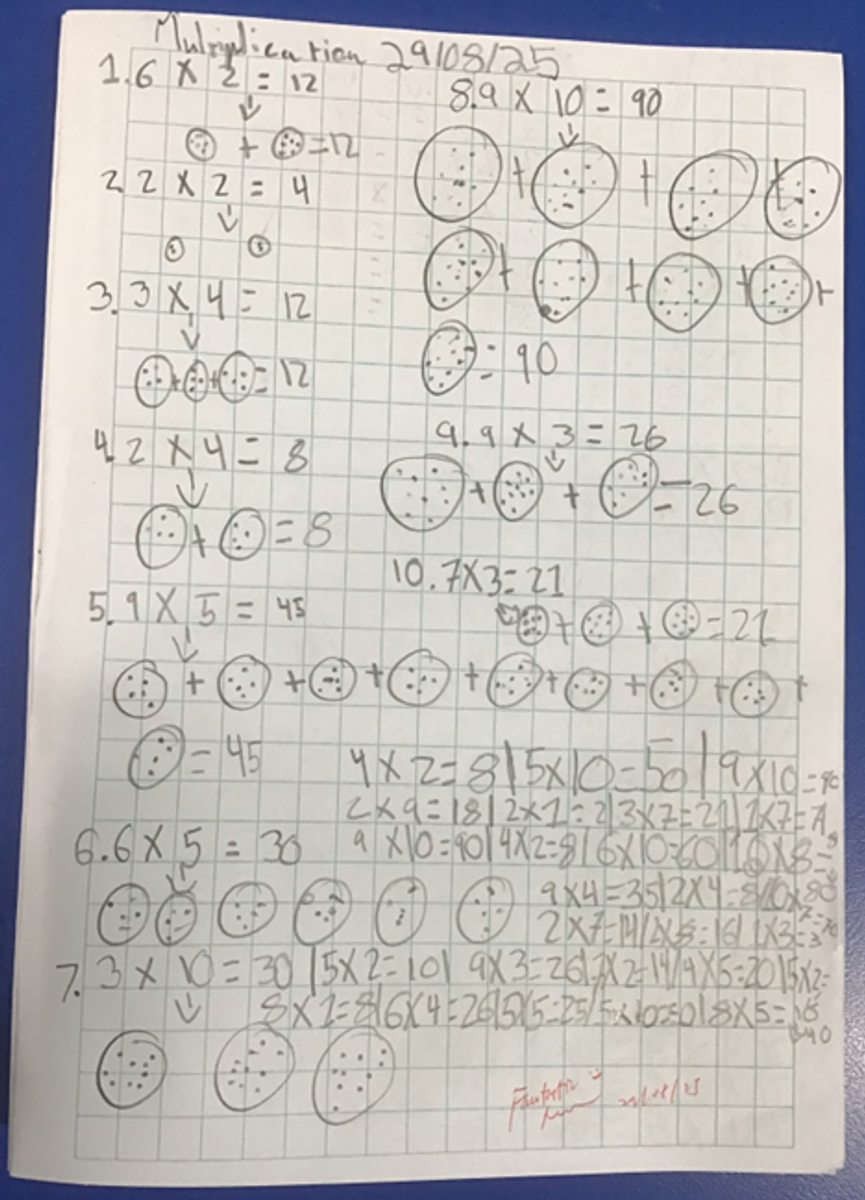 Multiplication 29/08/25
1. 6 X 2 = 12
+ = 12
2. 2 X 2 = 4
3. 3 X 4 = 12
+ + = 12
4. 2 X 4 = 8
+ = 8
5. 9 X 5 = 45
+ + + + + + + +
= 45
6. 6 X 5 = 30
7. 3 X 10 = 30
8. 9 X 10 = 90
+ + +
+ + + +
= 90
9. 9 X 3 = 26
+ + = 26
10. 7X3=21
+ + = 21
4 X 2=8|5X10=50|9X10=90
2X9=18|2X1=2|3X7=21|1X7=7
9 X10=90|4X2=8|6X10=60|10X8=
9X4=35|2X4=8|10X8
2X7=14|2X8=16|1X3=3
|5X2=10|9X3=26|7X2=14|4X5=20|5X2=
8X1=8|6X4=26|5X5=25|5X10=50|8X5=
40
Fantastic
29/08/25